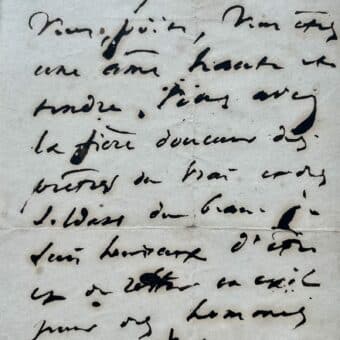 Vous, poëte, Vous êtes
une âme haute et
tendre. Vous avez
la fière douceur des
prêtres du vrai et des
soldats du beau. Je
suis heureux d'être
et de rester en exil
pour des hommes